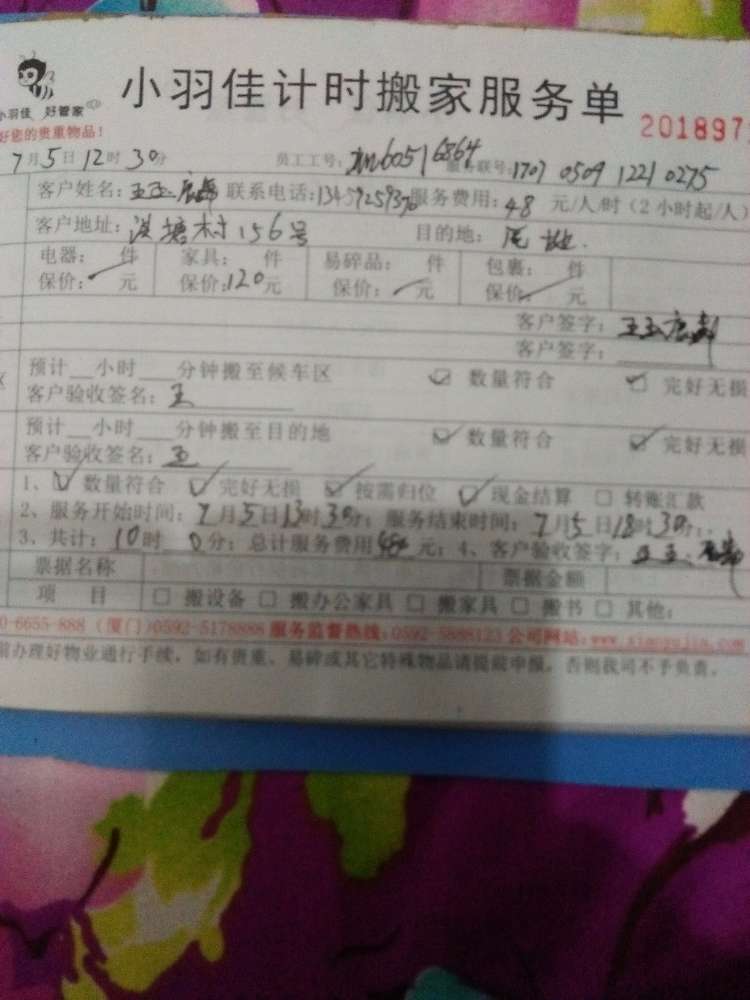 小羽佳计时搬家服务单
小羽佳 好管家
好您的贵重物品！
201897
7月5日12时30分 员工工号： 服务联号：1707 0509 1221 0275
客户姓名： 联系电话： 服务费用：48 元/人/时（2小时起/人）
客户地址：洪塘村156号 目的地：
电器： 件 家具： 件 易碎品： 件 包裹： 件
保价： 元 保价：120元 保价： 元 保价： 元
客户签字：
客户签字：
预计 小时 分钟搬至候车区 数量符合 完好无损
客户验收签名：王
预计 小时 分钟搬至目的地 数量符合 完好无损
客户验收签名：王
1、 数量符合 完好无损 按需归位 现金结算 转账汇款
2、服务开始时间：7月5日13时30分；服务结束时间：7月5日18时30分；
3、共计：10时0分；总计服务费用 元；4、客户验收签字：
票据名称 票据金额
项 目 搬设备 搬办公家具 搬家具 搬书 其他：
0-6655-888（厦门）0592-5178888 服务监督热线：0592-5888123 公司网站：www.xiaoyujia.com
前办理好物业通行手续，如有贵重、易碎或其它特殊物品请提前申报，否则我司不予负责。